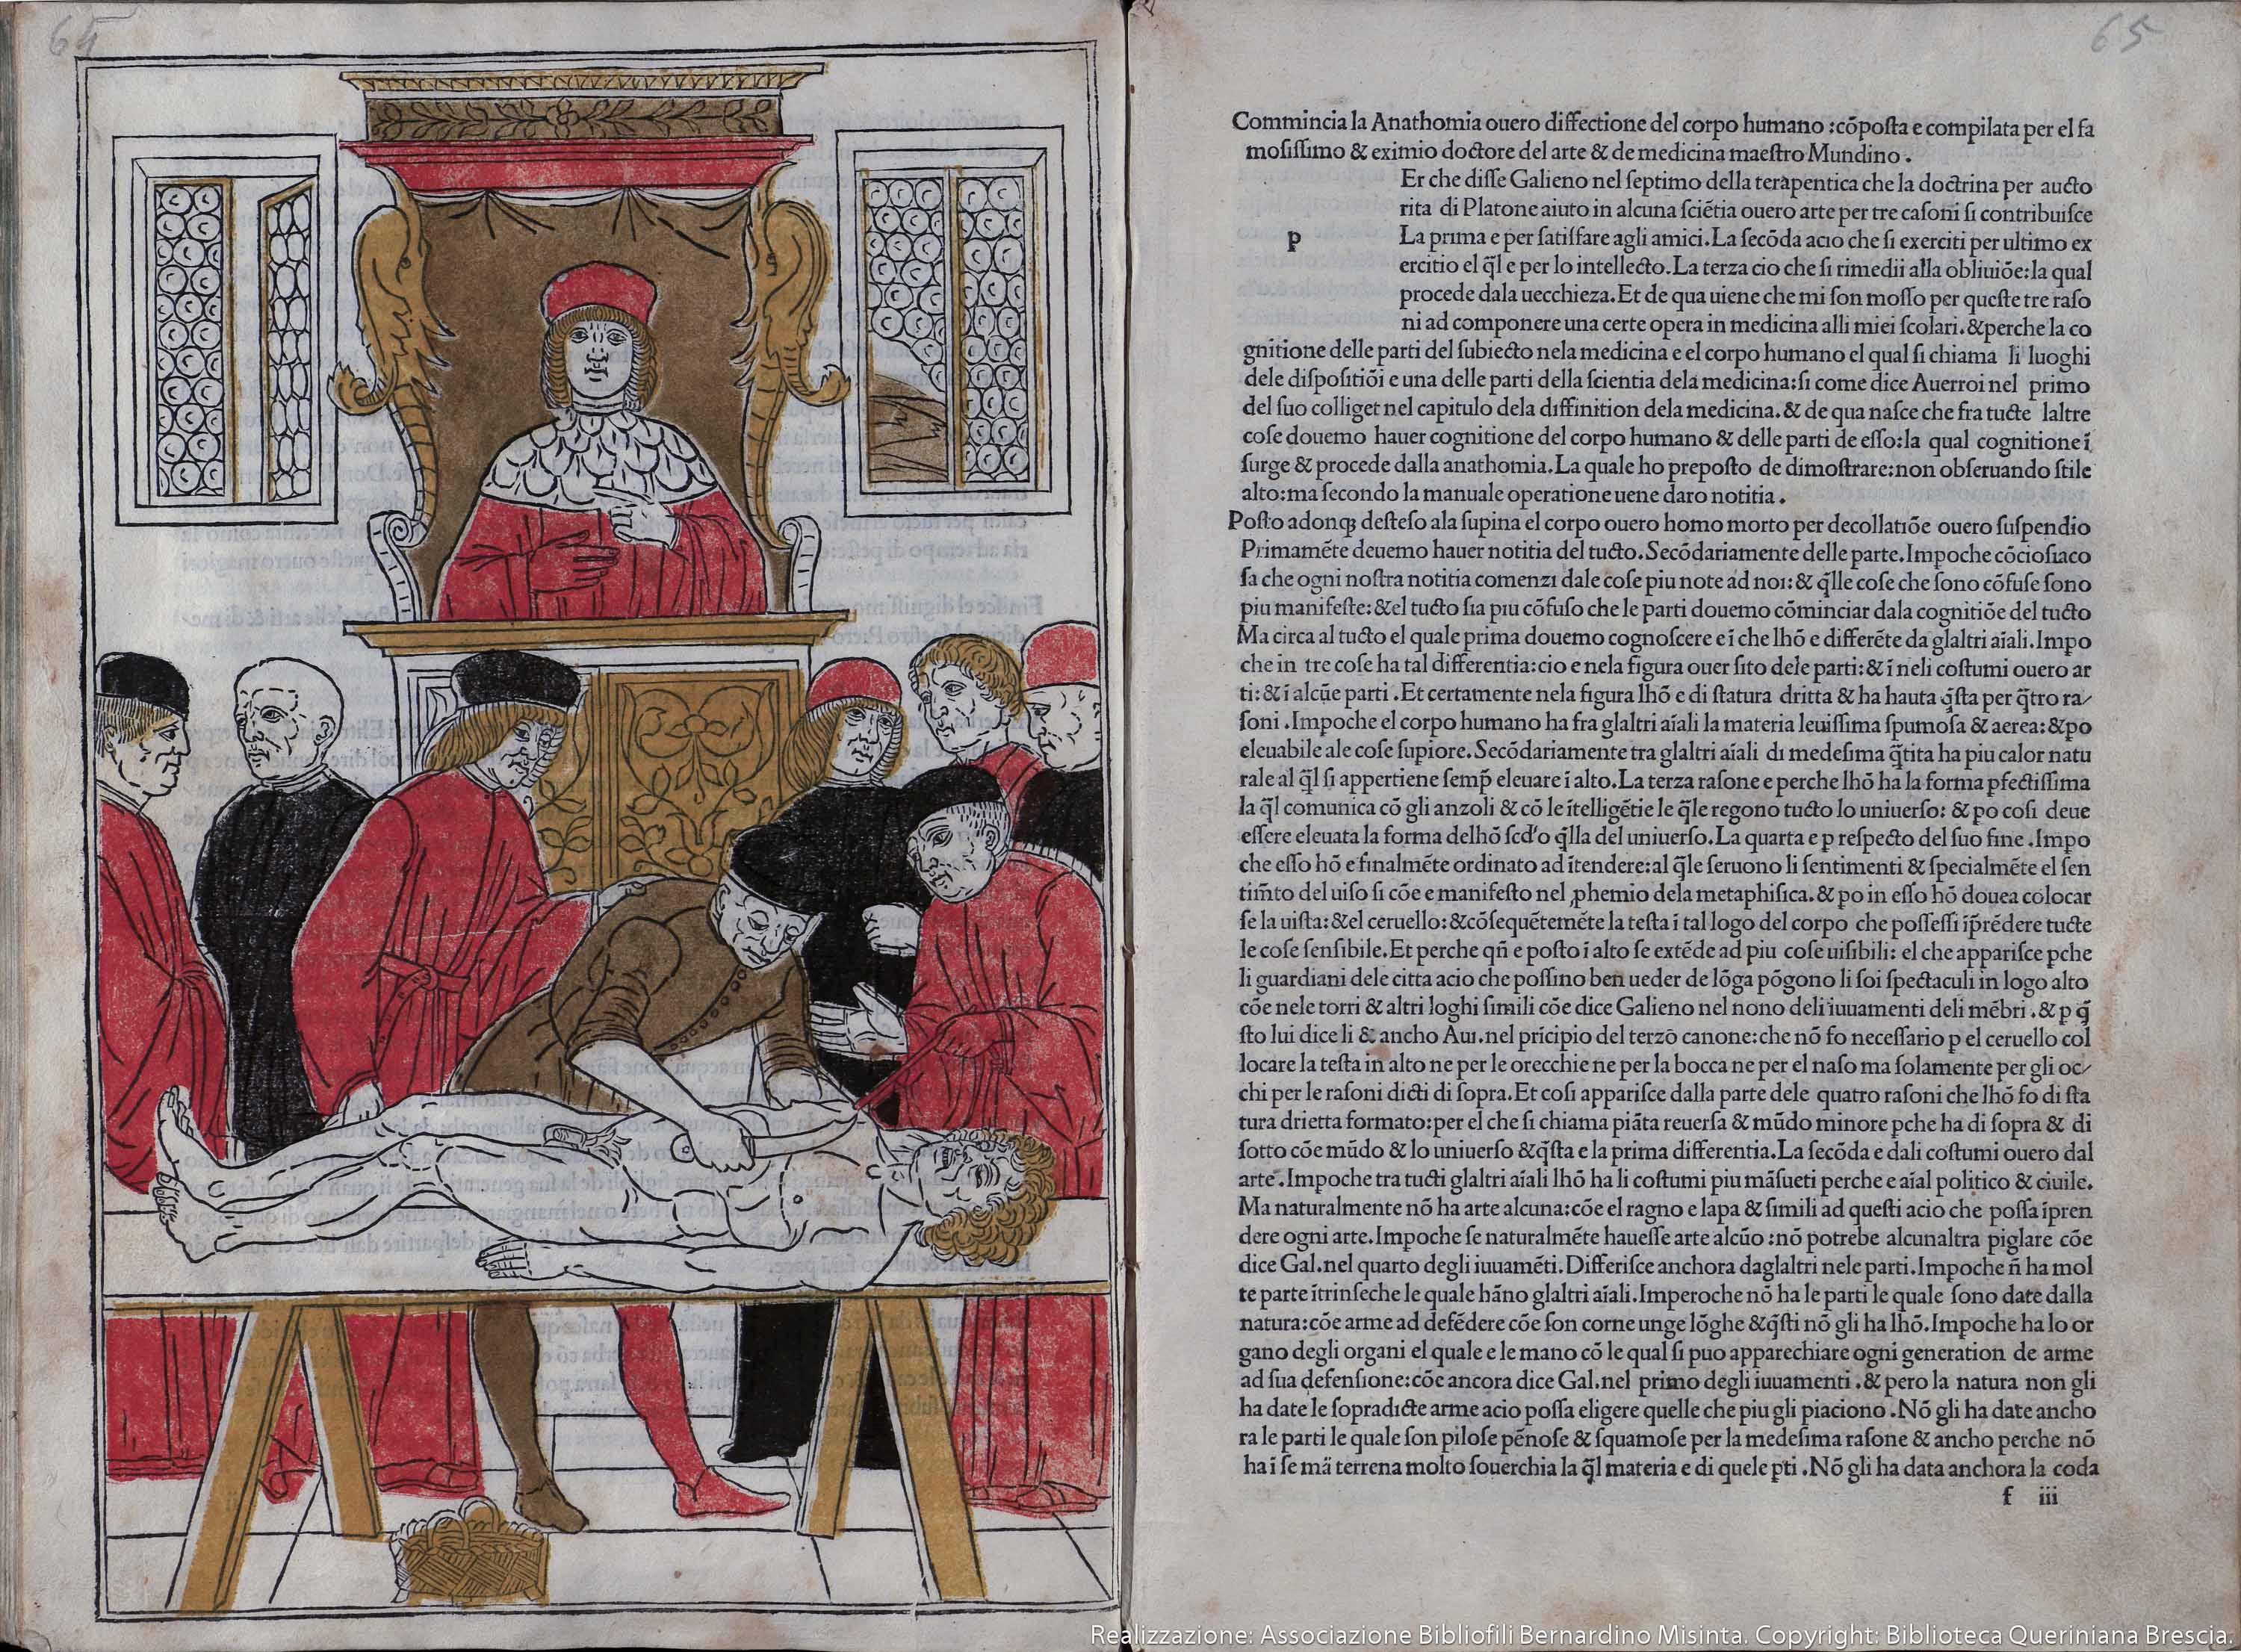 64
65
Commincia la Anathomia ouero diſſectione del corpo humano :cõpoſta e compilata per el fa
moſiſſimo & eximio doctore del arte & de medicina maeſtro Mundino .
Er che diſſe Galieno nel ſeptimo della terapentica che la doctrina per aucto
rita di Platone aiuto in alcuna ſciẽtia ouero arte per tre caſoni ſi contribuiſce
p La prima e per ſatiſfare agli amici.La ſecõda acio che ſi exerciti per ultimo ex
ercitio el q̃l e per lo intellecto.La terza cio che ſi rimedii alla obliuiõe:la qual
procede dala uecchieza.Et de qua uiene che mi ſon moſſo per queſte tre raſo
ni ad componere una certe opera in medicina alli miei ſcolari.&perche la co
gnitione delle parti del ſubiecto nela medicina e el corpo humano el qual ſi chiama li luoghi
dele diſpoſitiõi e una delle parti della ſcientia dela medicina:ſi come dice Auerroi nel primo
del ſuo colliget nel capitulo dela diffinition dela medicina.& de qua naſce che fra tucte laltre
coſe douemo hauer cognitione del corpo humano & delle parti de eſſo:la qual cognitione ĩ
ſurge & procede dalla anathomia.La quale ho prepoſto de dimoſtrare:non obſeruando ſtile
alto:ma ſecondo la manuale operatione uene daro notitia .
Poſto adonqȝ deſteſo ala ſupina el corpo ouero homo morto per decollatiõe ouero ſuſpendio
Primamẽte deuemo hauer notitia del tucto.Secõdariamente delle parte.Impoche cõcioſiaco
ſa che ogni noſtra notitia comenzi dale coſe piu note ad noi:& q̃lle coſe che ſono cõfuſe ſono
piu manifeſte:&el tucto ſia piu cõfuſo che le parti douemo cõminciar dala cognitiõe del tucto
Ma circa al tucto el quale prima douemo cognoſcere e ĩ che lhõ e differẽte da glaltri aĩali.Impo
che in tre coſe ha tal differentia:cio e nela figura ouer ſito dele parti:& ĩ neli coſtumi ouero ar
ti:& ĩ alcũe parti .Et certamente nela figura lhõ e di ſtatura dritta & ha hauta q̃ſta per q̃tro ra/
ſoni .Impoche el corpo humano ha fra glaltri aĩali la materia leuiſſima ſpumoſa & aerea:&po
eleuabile ale coſe ſupiore.Secõdariamente tra glaltri aĩali di medeſima q̃tita ha piu calor natu
rale al q̃l ſi appertiene ſemp̃ eleuare ĩ alto.La terza raſone e perche lhõ ha la forma pfectiſſima
la q̃l comunica cõ gli anzoli & cõ le ĩtelligẽtie le q̃le regono tucto lo uniuerſo: & po coſi deue
eſſere eleuata la forma delhõ ſcd'o q̃lla del uniuerſo.La quarta e p reſpecto del ſuo fine .Impo
che eſſo hõ e finalmẽte ordinato ad ĩtendere:al q̃le ſeruono li ſentimenti & ſpecialmẽte el ſen
tim̃to del uiſo ſi cõe e manifeſto nel phemio dela metaphiſica.& po in eſſo hõ douea colocar
ſe la uiſta:&el ceruello:&cõſequẽtemẽte la teſta ĩ tal logo del corpo che poſſeſſi ĩp̃rẽdere tucte
le coſe ſenſibile.Et perche qñ e poſto ĩ alto ſe extẽde ad piu coſe uiſibili: el che appariſce pche
li guardiani dele citta acio che poſſino ben ueder de lõga põgono li ſoi ſpectaculi in logo alto
cõe nele torri & altri loghi ſimili cõe dice Galieno nel nono deli iuuamenti deli mẽbri .& p q̃
ſto lui dice li & ancho Aui.nel prĩcipio del terzo canone:che nõ fo neceſſario p el ceruello col
locare la teſta in alto ne per le orecchie ne per la bocca ne per el naſo ma ſolamente per gli oc/
chi per le raſoni dicti di ſopra.Et coſi appariſce dalla parte dele quatro raſoni che lhõ fo di ſta
tura drietta formato:per el che ſi chiama piãta reuerſa & mũdo minore pche ha di ſopra & di
ſotto cõe mũdo & lo uniuerſo &q̃ſta e la prima differentia.La ſecõda e dali coſtumi ouero dal
arte .Impoche tra tucti glaltri aĩali lhõ ha li coſtumi piu mãſueti perche e aĩal politico & ciuile.
Ma naturalmente nõ ha arte alcuna:cõe el ragno e lapa & ſimili ad queſti acio che poſſa ĩpren
dere ogni arte.Impoche ſe naturalmẽte haueſſe arte alcũo :nõ potrebe alcunaltra piglare cõe
dice Gal.nel quarto degli iuuamẽti.Differiſce anchora daglaltri nele parti.Impoche ñ ha mol
te parte ĩtrinſeche le quale hãno glaltri aĩali.Imperoche nõ ha le parti le quale ſono date dalla
natura:cõe arme ad defẽdere cõe ſon corne unge lõghe &q̃ſti nõ gli ha lhõ.Impoche ha lo or
gano degli organi el quale e le mano cõ le qual ſi puo apparechiare ogni generation de arme
ad ſua defenſione:cõe ancora dice Gal.nel primo degli iuuamenti .& pero la natura non gli
ha date le ſopradicte arme acio poſſa eligere quelle che piu gli piaciono .Nõ gli ha date ancho
ra le parti le quale ſon piloſe pẽnoſe & ſquamoſe per la medeſima raſone & ancho perche nõ
ha ĩ ſe mã terrena molto ſouerchia la q̃l materia e di quele pti .Nõ gli ha data anchora la coda
f iii
Realizzazione: Associazione Bibliofili Bernardino Misinta. Copyright: Biblioteca Queriniana Brescia.